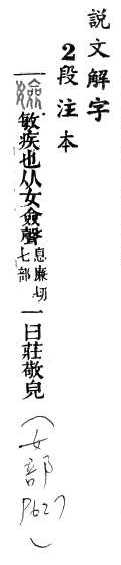 説文解字
2段注本
嬐 敏疾也从女僉聲 息廉切七部 一曰莊敬皃
(女部 P627)